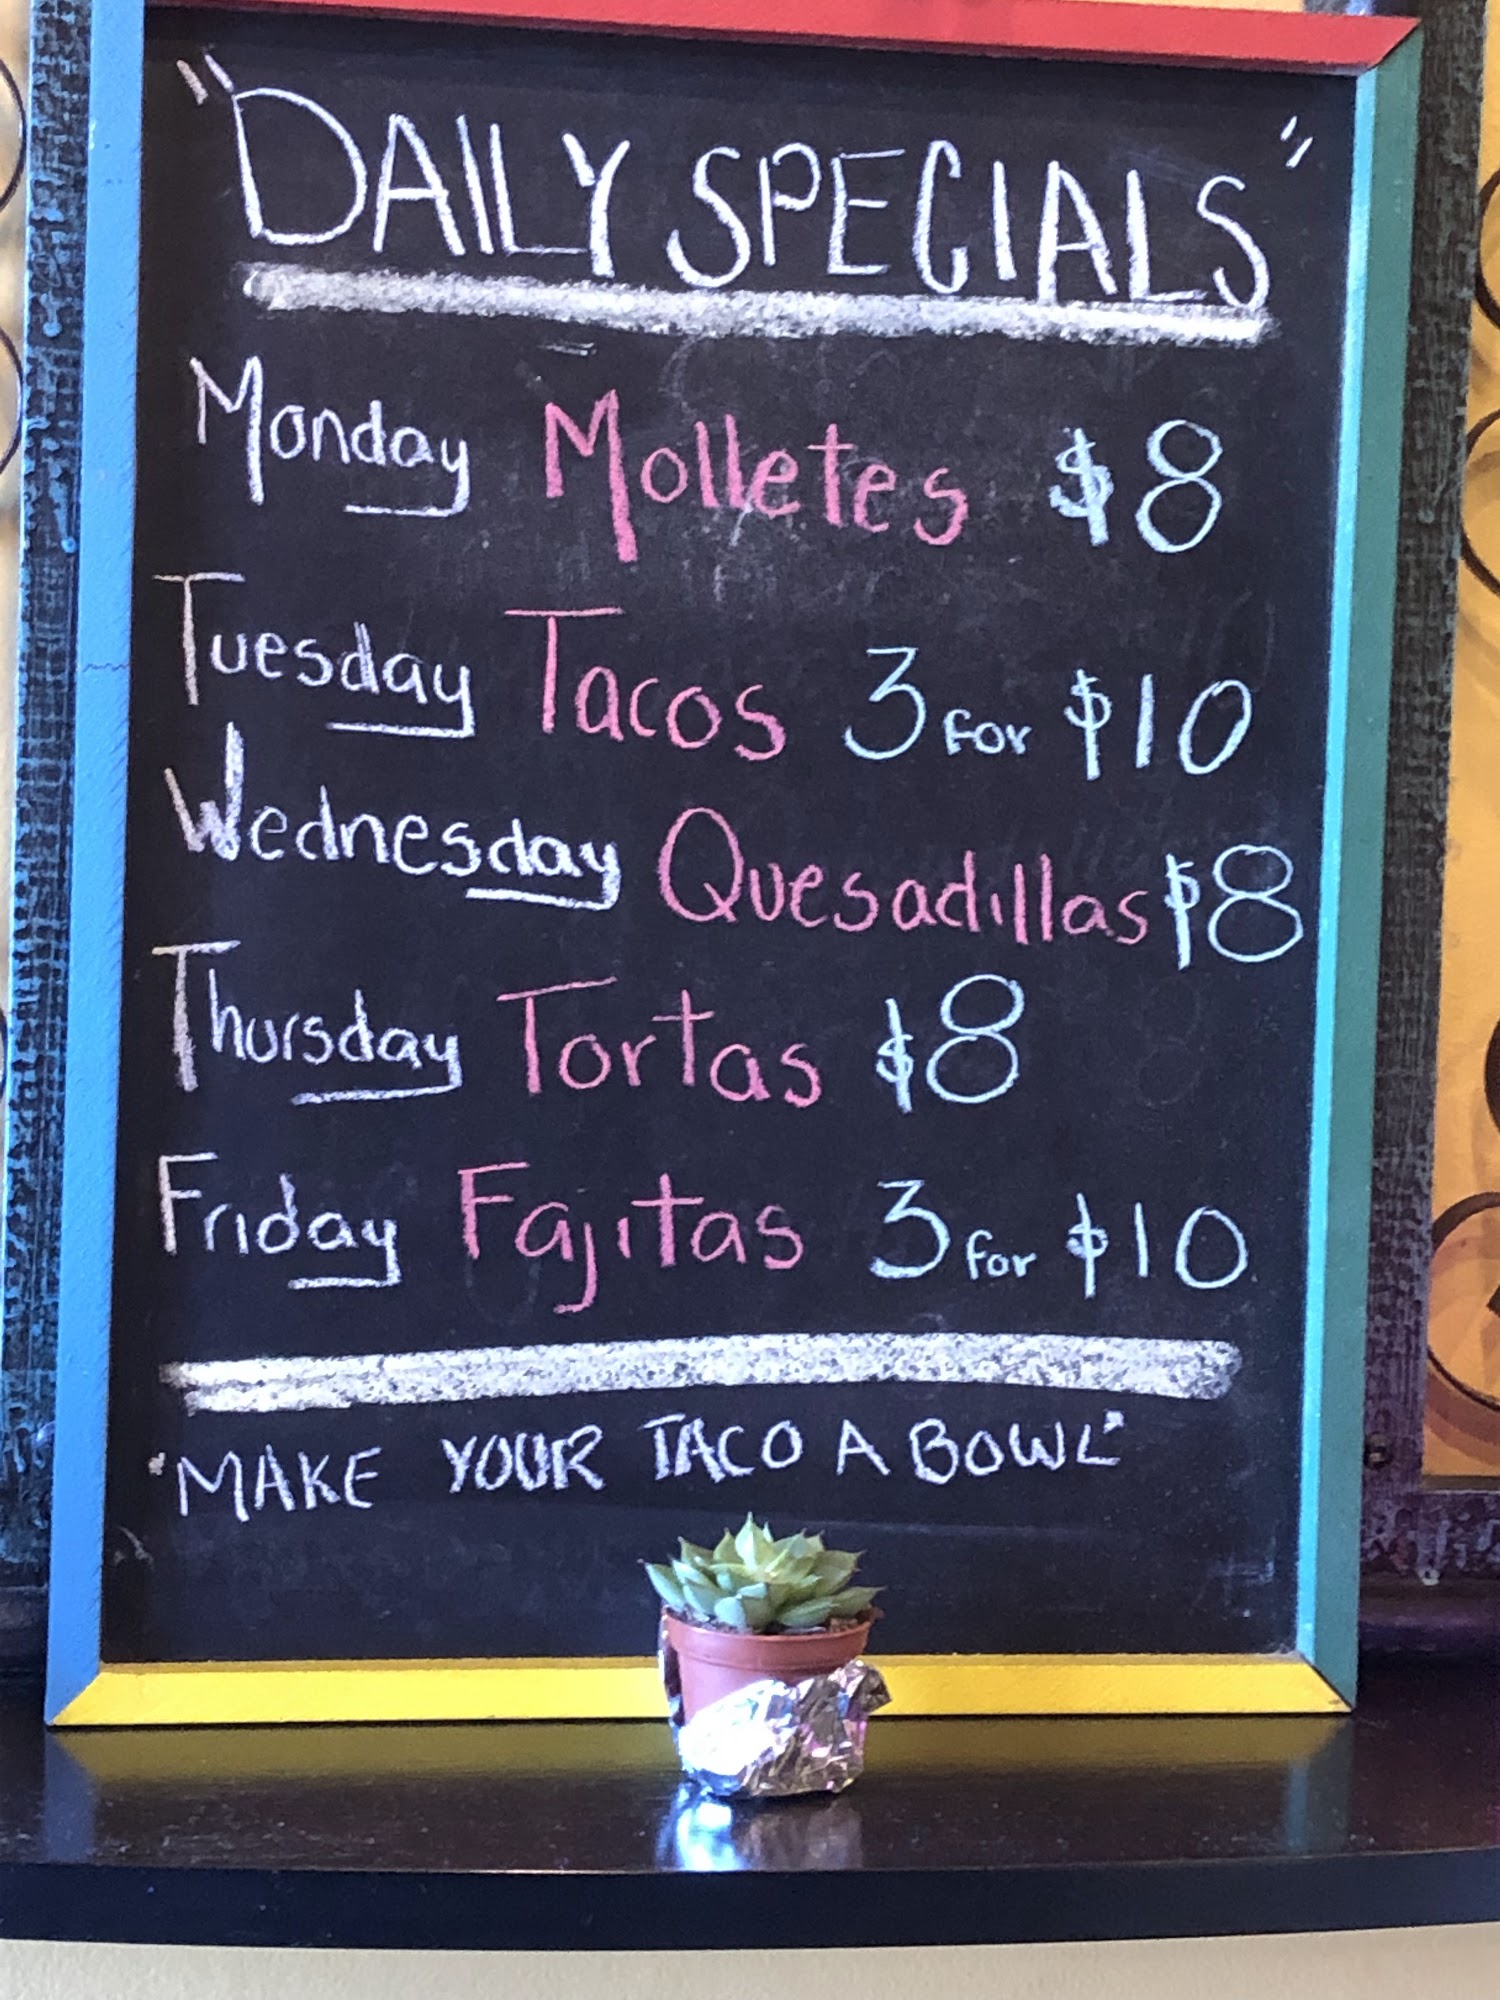 "DAILY SPECIALS"
Monday Molletes $8
Tuesday Tacos 3 for $10
Wednesday Quesadillas $8
Thursday Tortas $8
Friday Fajitas 3 for $10
"MAKE YOUR TACO A BOWL"